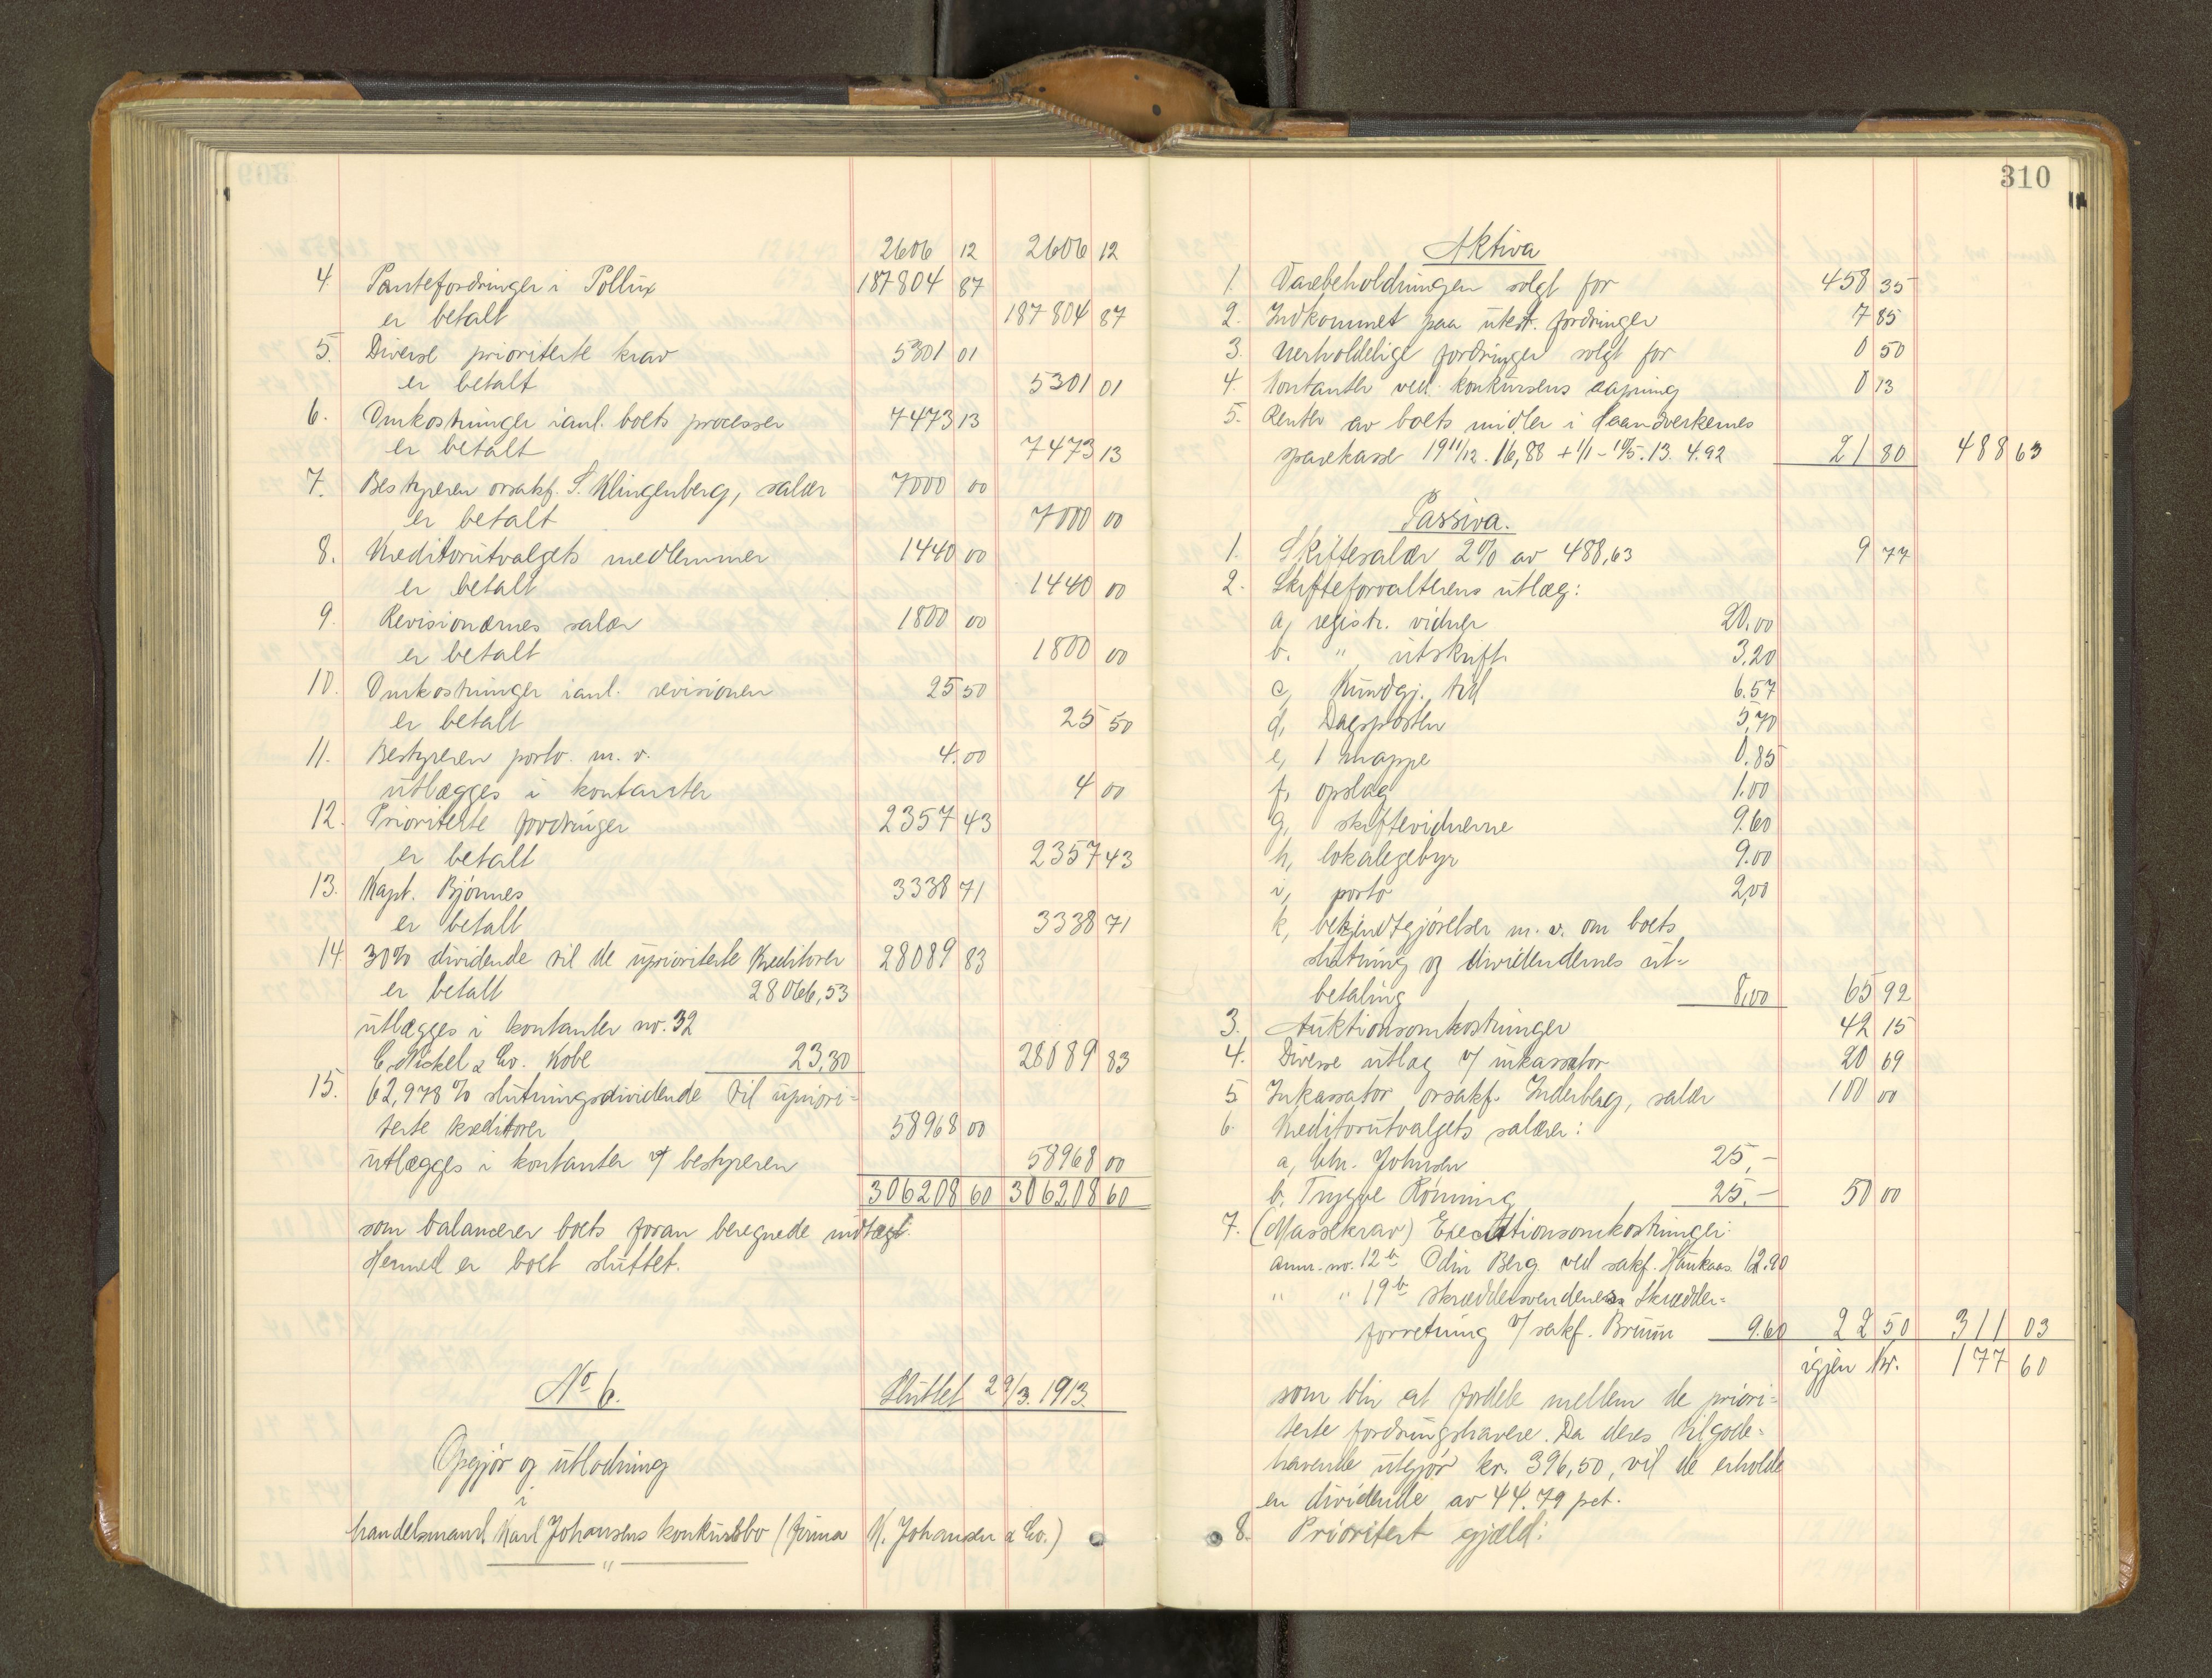 2606 12 2606 12
4. Pantefordringer i Pollux 187804 87
er betalt 187804 87
5. Diverse prioriterte krav 5301 01
er betalt 5301 01
6. Omkostninger ianl. boets processer 7473 13
er betalt 7473 13
7. Bestyreren orsakf. S. Klingenberg, salær 7000 00
er betalt 7000 00
8. Kreditorutvalgets medlemmer 1440 00
er betalt 1440 00
9. Revisionærnes salær 1800 00
er betalt 1800 00
10. Omkostninger ianl. revisionen 25 50
er betalt 25 50
11. Bestyreren porto m. v. 4.00
utlægges i kontanter 4 00
12. Prioriterte fordringer 2357 43
er betalt 2357 43
13. Kapt. Bjönnes 3338 71
er betalt 3338 71
14 30% dividende til de uprioriterte Kreditorer 28089 83
er betalt 28066,53
utlægges i kontanter no. 32
C. Nickel & Co. Kobe 23,30 28089 83
15. 62,978 % slutningsdividende til upriori=
terte kreditorer 58968 00
utlægges i kontanter v/ bestyreren 58968 00
306208 60 306208 60
som balancerer boets foran beregnede indtægt.
Hermed er boet sluttet.
No 6. Sluttet 29/3. 1913.
Opgjør og utlodning
i
handelsmand Karl Johansens konkursbo (firma K. Johansen & Co.)
310
Aktiva
1. Varebeholdningen solgt for 458 35
2. Indkommet paa utest. fordringer 7 85
3. Uerholdelige fordringer solgt for 0 50
4. Kontanter ved konkursens aapning 0 13
5. Renter av boets midler i Haandverkernes
sparekasse 19 11/12. 16,88 + 1/1 - 10/5. 13. 4.92 21 80 488 63
Passiva.
1. Skiftesalær 2% av 488,63 9 77
2. Skifteforvalterens utlæg:
a, registr. vidner 20.00
b. " utskrift 3,20
c, Kundgj. tid 6.57
d, Dagsposten 5,70
e, 1 mappe 0.85
f, opslag 1.00
g, skiftevidnerne 9.60
h, lokalegebyr 9.00
i, porto 2,00
k, bekjendtgjørelser m. v. om boets
slutning og dividendernes ut=
betaling 8,00 65 92
3. Auktionsomkostninger 42 15
4. Diverse utlæg v/ inkassator 20 69
5 Inkassator orsakf. Inderberg, salær 100 00
6. Kreditorutvalgets salærer:
a, Chr. Johnsen 25,-
b. Trygve Rönning 25.- 50 00
7. (Massekrav) Executionsomkostninger:
anm. no. 12 b Odin Berg ved sakf. Haukaas 12.90
" " 19 b skræddersvendenes Skrædder=
forretning v/ sakf. Bruun 9.60 22 50 311 03
igjen Kr. 177 60
som blir at fordele mellem de priori=
terte fordringshavere. Da deres tilgode=
havende utgjør kr. 396,50, vil de erholde
en dividende av 44.79 pct.
8. Prioritert gjæld: